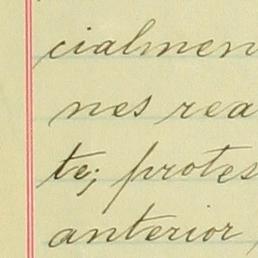 cialmen
nes rea
te; protes
anterior